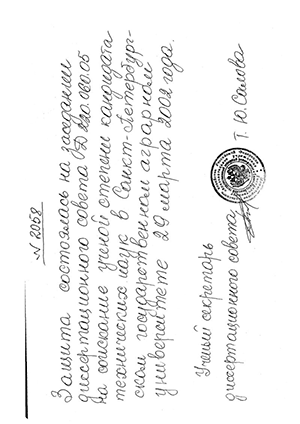 № 2058
Защита состоялась на заседании
диссертационного совета Д 220.060.05
на соискание ученой степени кандидата
технических наук в Санкт-Петербург-
ском государственном аграрном
университете 29 марта 2002 года.
Ученый секретарь
диссертационного совета
Т. Ю. Салова